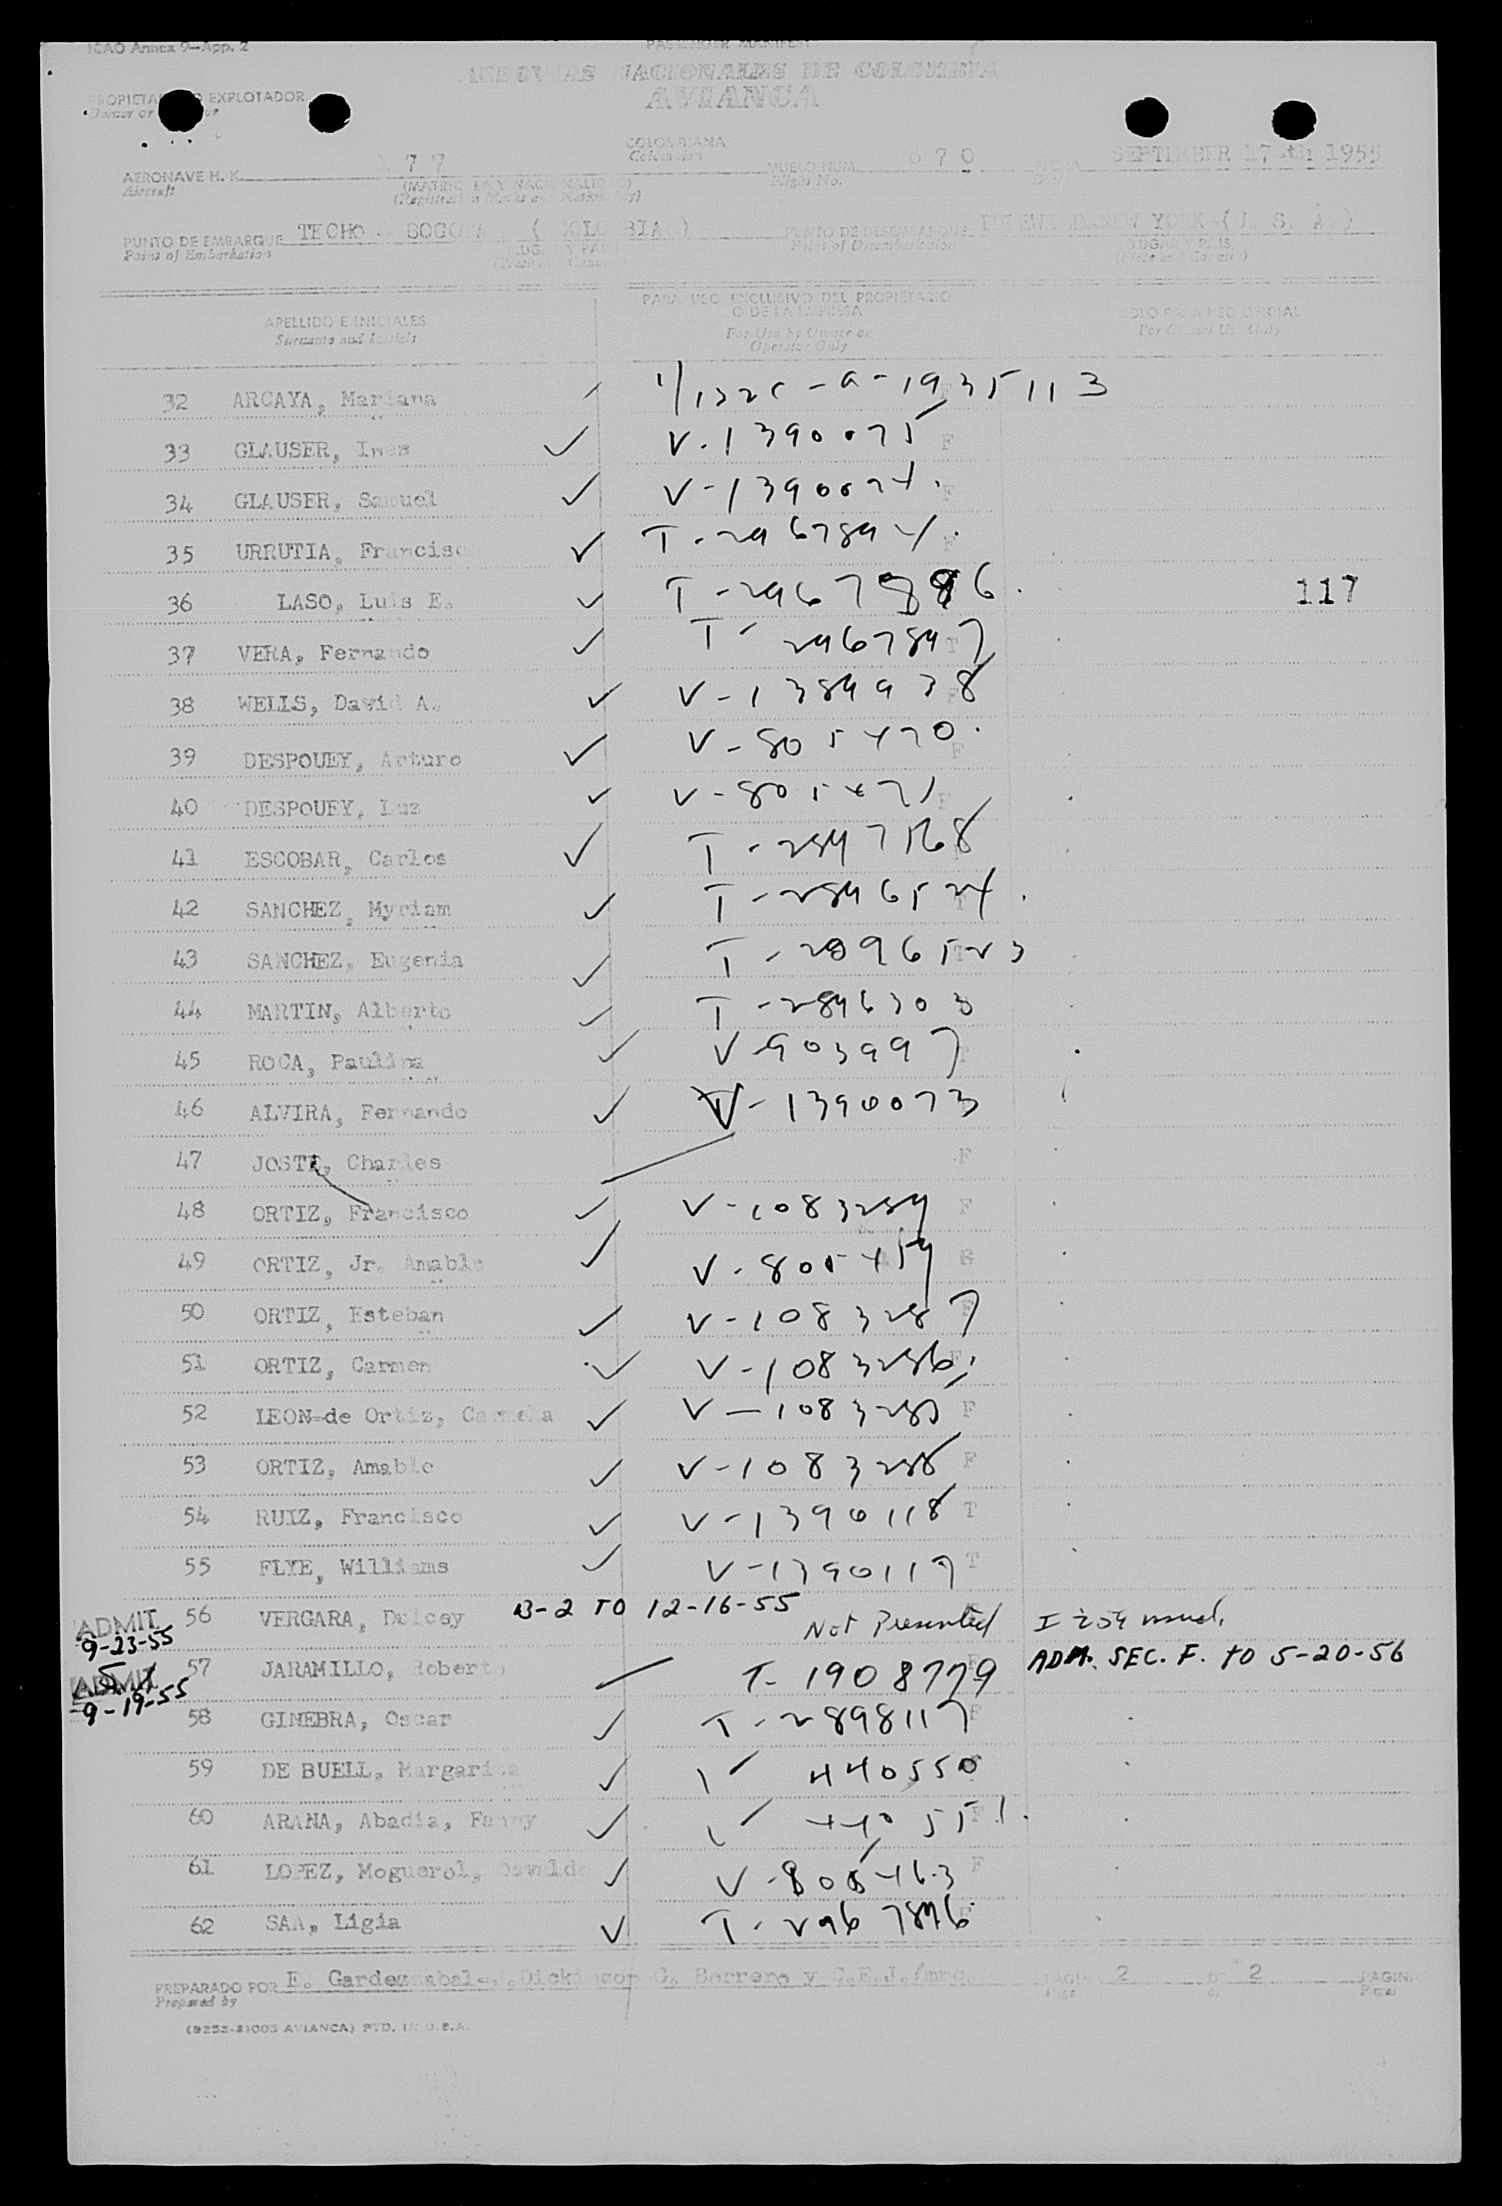 ICAO Annex 9—App. 2
PASSENGER MANIFEST
AEROVIAS NACIONALES DE COLOMBIA
AVIANCA
PROPIETARIO O EXPLOTADOR
Owner or
COLOMBIANA
Colombian
AERONAVE H. K. 177 VUELO NUM. 670 SEPTIEMBER 17-th 1955
Aircraft (MATRICULA Y NACIONALIDAD) Flight No.
(Registration Marks and Nationality)
PUNTO DE EMBARQUE TECHO - BOGOTA (COLOMBIA) PUNTO DE DESEMBARQUE IDLEWILD-NEW YORK-(U. S. A.)
Point of Embarkation Point of Disembarkation (LUGAR Y PAIS)
(Place and Country)
APELLIDO E INICIALES PARA USO EXCLUSIVO DEL PROPIETARIO O DE LA EMPRESA SOLO PARA USO OFICIAL
Surname and Initials For Use by Owner or Operator Only For Official Use Only
32 ARCAYA, Mariana
33 GLAUSER, Ines V-1390075 F
34 GLAUSER, Samuel V-1390074 F
35 URRUTIA, Francisco T-2967894 F
36 LASO, Luis E. 117
37 VERA, Fernando T-2967897 T
38 WELLS, David A. V-1389938 F
39 DESPOUEY, Arturo V-805470 F
40 DESPOUEY, Luz V-805471 F
41 ESCOBAR, Carlos T-2897168
42 SANCHEZ, Myriam T-2896524 T
43 SANCHEZ, Eugenia T-2896523 T
44 MARTIN, Alberto T-2896303
45 ROCA, Paulina V-903997 T
46 ALVIRA, Fernando V-1390073
47 JOSTE, Charles F
48 ORTIZ, Francisco V-1083289 F
49 ORTIZ, Jr. Amable V-805459
50 ORTIZ, Esteban V-1083287 F
51 ORTIZ, Carmen V-1083286 F
52 LEON-de Ortiz, Carmela V-1083285 F
53 ORTIZ, Amable V-1083288 F
54 RUIZ, Francisco V-1390118 T
55 FLYE, Williams V-1390117 T
ADMIT 56 VERGARA, Dulcey B-2 TO 12-16-55 Not Presented
9-23-55
57 JARAMILLO, Roberto T-1908779 ADM. SEC. F. TO 5-20-56
ADMIT
9-19-55
58 GINEBRA, Oscar T-2898117 F
59 DE BUELL, Margarita V 440550
60 ARANA, Abadia, Fanny V 440551 F
61 LOPEZ, Moguerol, Oswaldo V-805463 F
62 SAA, Ligia T-2967896
PREPARADO POR E. Gardeazabal-J.Dickinson G. Borrero y C.E.J. PAGINA 2 DE 2 PAGINAS
Prepared by Page of Pages
(9253-21003 AVIANCA) PTD. IN U.S.A.